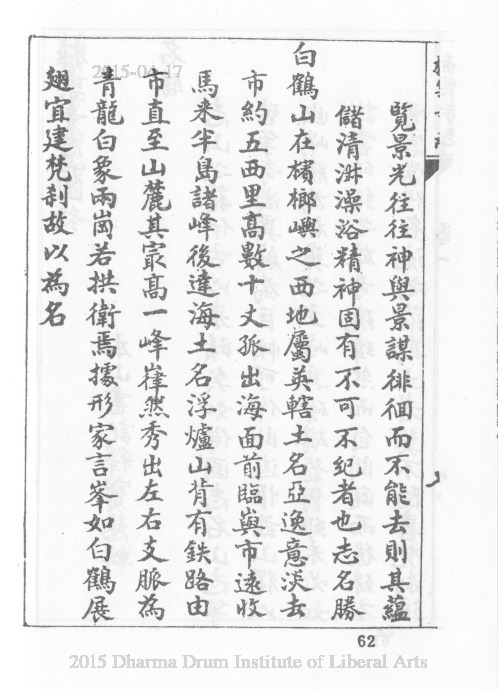 覽景光往往神與景謀徘徊而不能去則其蘊
儲清淋澡浴精神固有不可不紀者也志名勝
白鶴山在檳榔嶼之西地屬英轄土名亞逸意淡去
市約五西里高數十丈脈出海面前臨與市遠收
馬来半島諸峰後達海土名浮爐山背有鉄路由
市直至山麓其㝡高一峰嵂然秀出左右支脈為
青龍白象兩崗若拱衛焉據形家言峯如白鶴展
翅宜建梵刹故以為名
62
2015-04-17
2015 Dharma Drum Institute of Liberal Arts